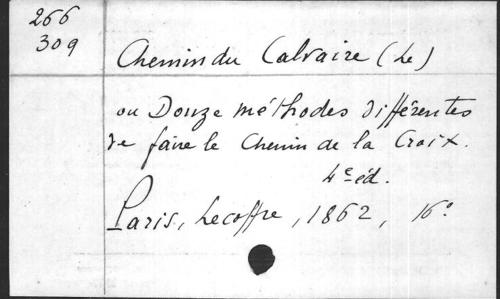 266
309
Chemin du Calvaire (Le)
ou Douze méthodes différentes
de faire le Chemin de la Croix.
4e éd.
Paris, Lecoffre, 1862, 16°